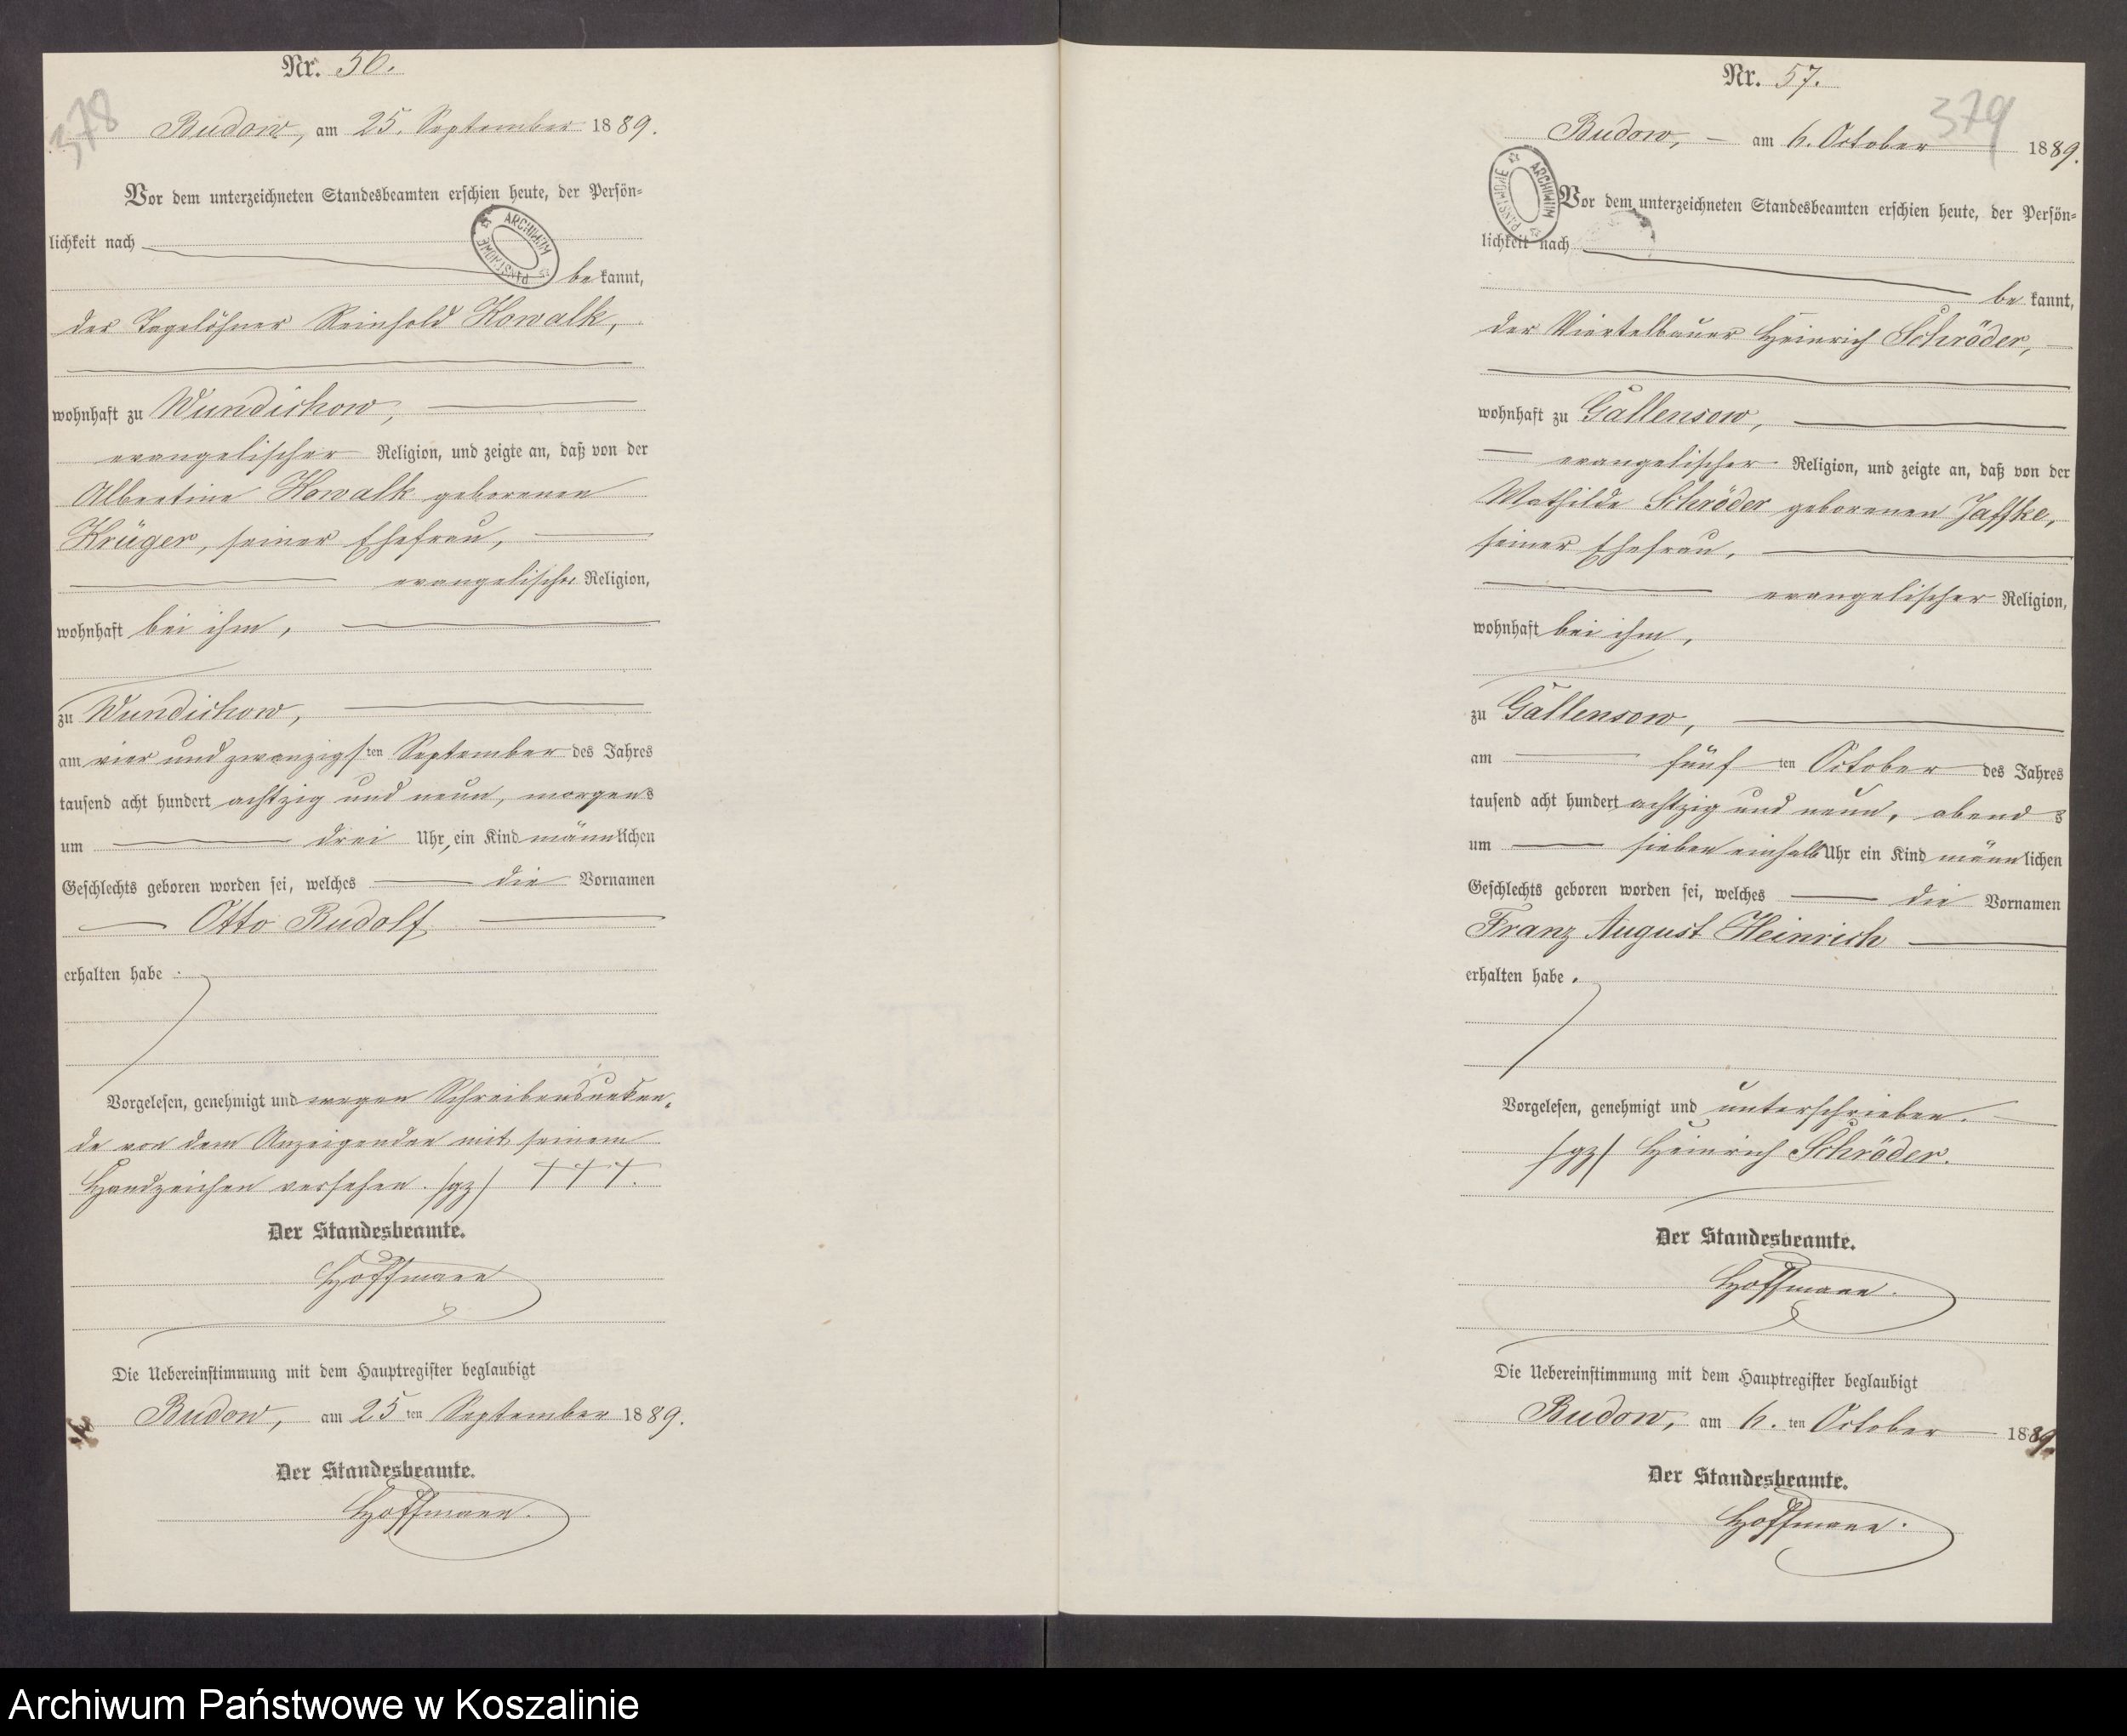 Nr. 56.
378
Budow, am 25. September 1889.
Vor dem unterzeichneten Standesbeamten erschien heute, der Persön-
lichkeit nach
ARCHIWUM PAŃSTWOWE
bekannt,
der Tagelöhner Reinhold Kowalk,
wohnhaft zu Wundichow,
evangelischer Religion, und zeigte an, daß von der
Albertine Kowalk geborenen
Krüger, seiner Ehefrau,
evangelischer Religion,
wohnhaft bei ihm,
zu Wundichow,
am vier und zwanzigsten September des Jahres
tausend acht hundert achtzig und neun, morgens
um drei Uhr, ein Kind männlichen
Geschlechts geboren worden sei, welches die Vornamen
Otto Rudolf
erhalten habe.
Vorgelesen, genehmigt und wegen Schreibensunkun-
de von dem Anzeigenden mit seinem
Handzeichen versehen. /gz/ +++.
Der Standesbeamte.
Hoffmann
Die Uebereinstimmung mit dem Hauptregister beglaubigt
Budow, am 25ten September 1889.
Der Standesbeamte.
Hoffmann.
Nr. 57.
379
Budow, am 6. October 1889.
ARCHIWUM PAŃSTWOWE
Vor dem unterzeichneten Standesbeamten erschien heute, der Persön-
lichkeit nach
bekannt,
der Viertelbauer Heinrich Schröder,
wohnhaft zu Gallensow,
evangelischer Religion, und zeigte an, daß von der
Mathilde Schröder geborenen Jaffke,
seiner Ehefrau,
evangelischer Religion,
wohnhaft bei ihm,
zu Gallensow,
am fünften October des Jahres
tausend acht hundert achtzig und neun, abends
um sieben einhalb Uhr ein Kind männlichen
Geschlechts geboren worden sei, welches die Vornamen
Franz August Heinrich
erhalten habe.
Vorgelesen, genehmigt und unterschrieben.
/gz/ Heinrich Schröder.
Der Standesbeamte.
Hoffmann.
Die Uebereinstimmung mit dem Hauptregister beglaubigt
Budow, am 6.ten October 1889.
Der Standesbeamte.
Hoffmann.
Archiwum Państwowe w Koszalinie